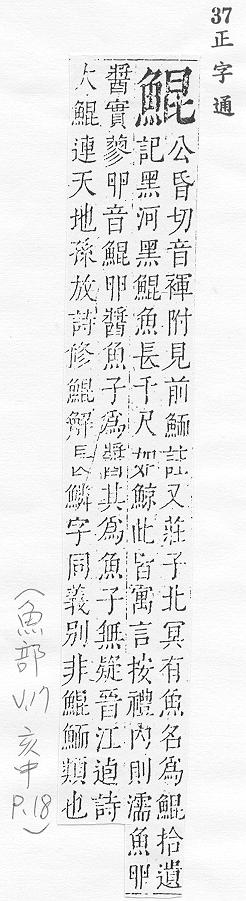 37正字通
鯤 公昏切音褌附見前鮞註又莊子北冥有魚名為鯤拾遺
記黑河黑鯤魚長千尺如鯨此皆寓言按禮內則濡魚卵
醬實蓼卵音鯤卵醬魚子為醬其為魚子無疑晉江逌詩
大鯤連天地孫放詩修鯤解長鱗字同義別非鯤鮞類也
(魚部 V.17 亥中 P.18)